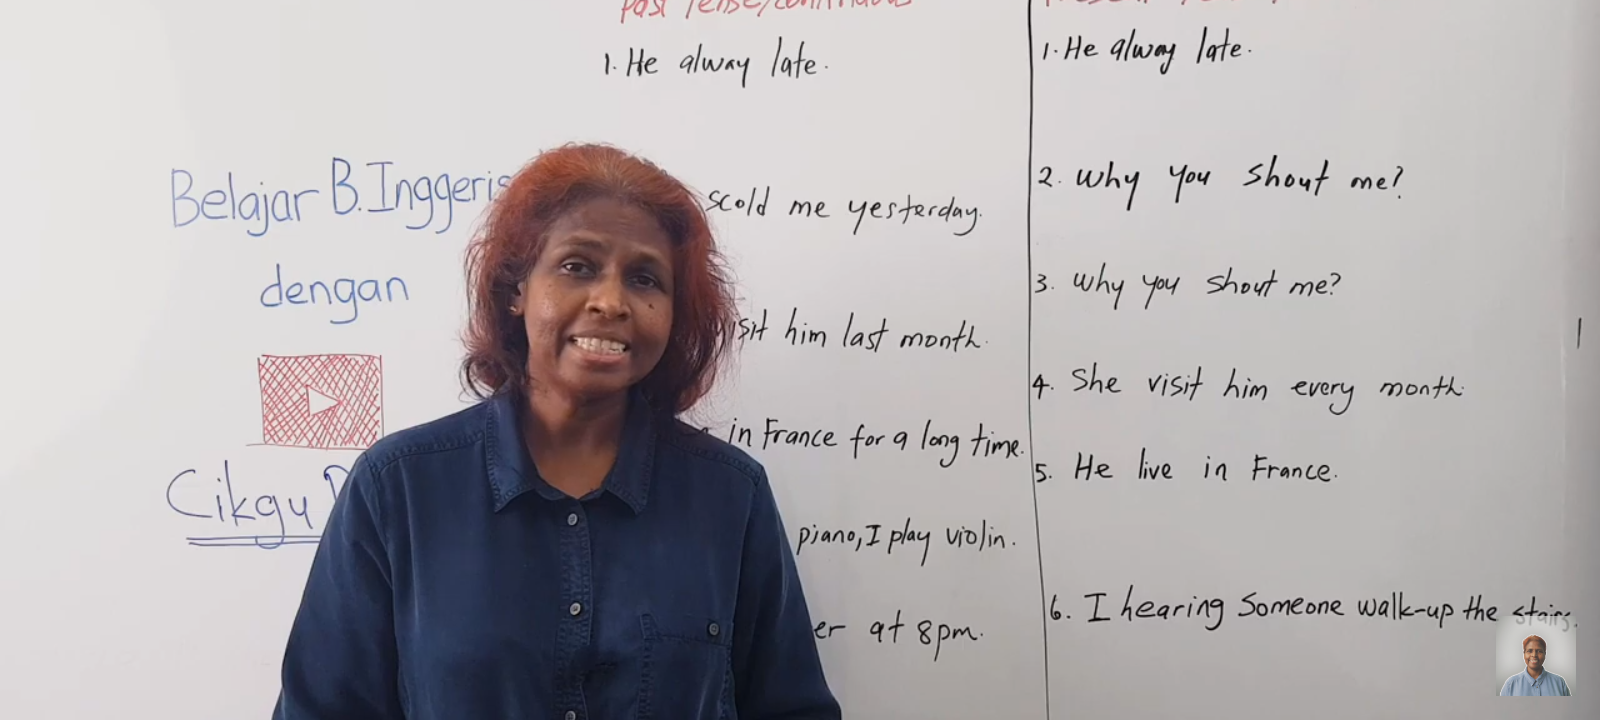 Past Tense/Continuous
1. He alway late.
scold me yesterday.
visit him last month.
in France for a long time.
piano, I play violin.
er at 8pm.
Belajar B. Inggeris
dengan
Cikgu
Present
1. He alway late.
2. Why you shout me?
3. Why you shout me?
4. She visit him every month.
5. He live in France.
6. I hearing someone walk-up the stairs.